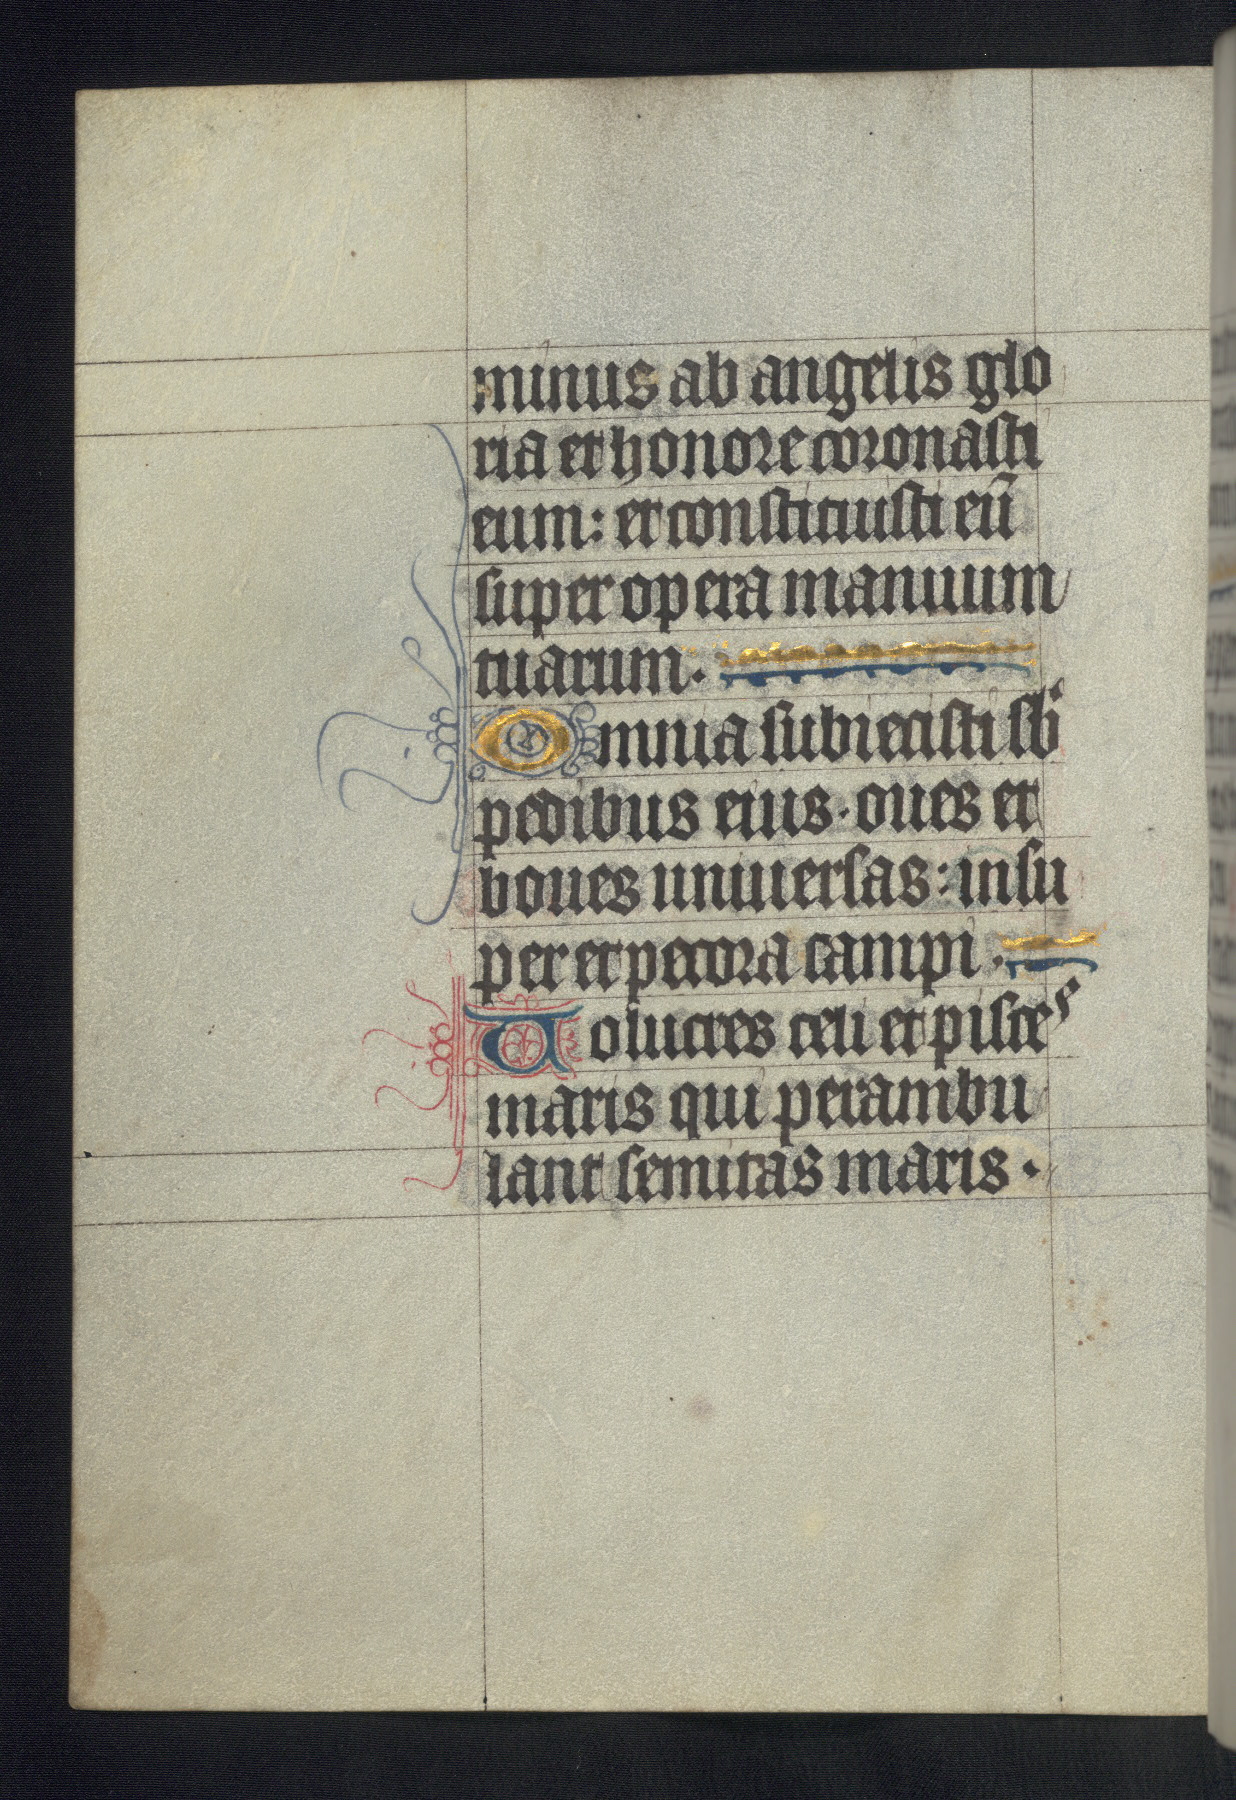 minus ab angelis glo
ria et honore coronasti
eum: et constituisti eū
super opera manuum
tuarum.
Omnia subiecisti sbˡ
pedibus eius. oues et
boues uniuersas: insu
per et pecora campi.
Uolucres celi et pisces
maris qui perambu
lant semitas maris.